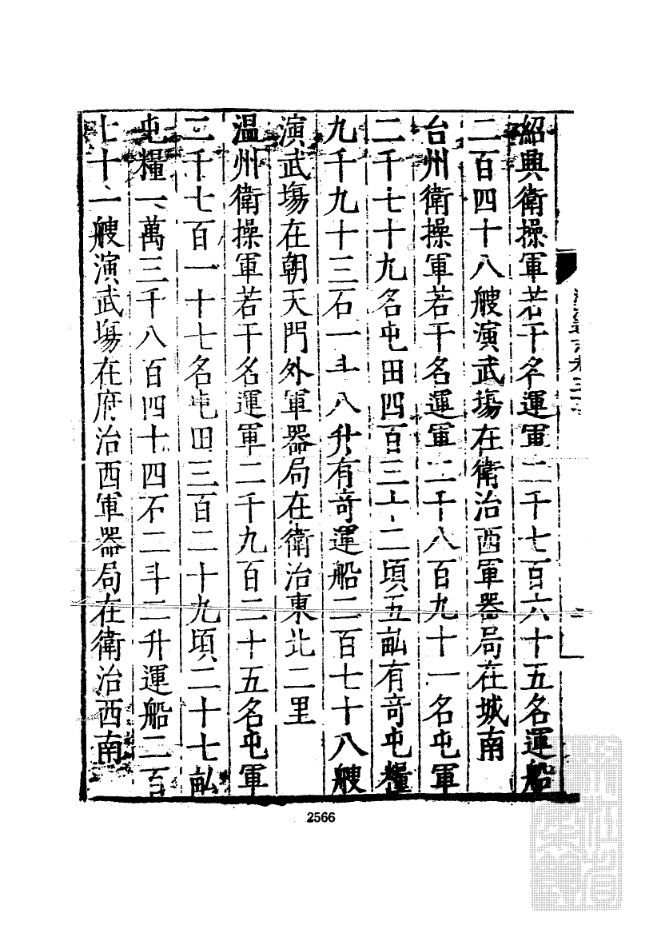 紹興衛操軍若干名運軍二千七百六十五名運船
二百四十八艘演武塲在衛治西軍器局在城南
台州衛操軍若干名運軍二千八百九十一名屯軍
二千七十九名屯田四百三十二頃五畝有奇屯糧
九千九十三石一斗八升有奇運船二百七十八艘
演武塲在朝天門外軍器局在衛治東北二里
温州衛操軍若干名運軍二千九百二十五名屯軍
二千七百一十七名屯田三百二十九頃二十七畝
屯糧一萬三千八百四十四石二斗二升運船二百
七十一艘演武塲在府治西軍器局在衛治西南
2566